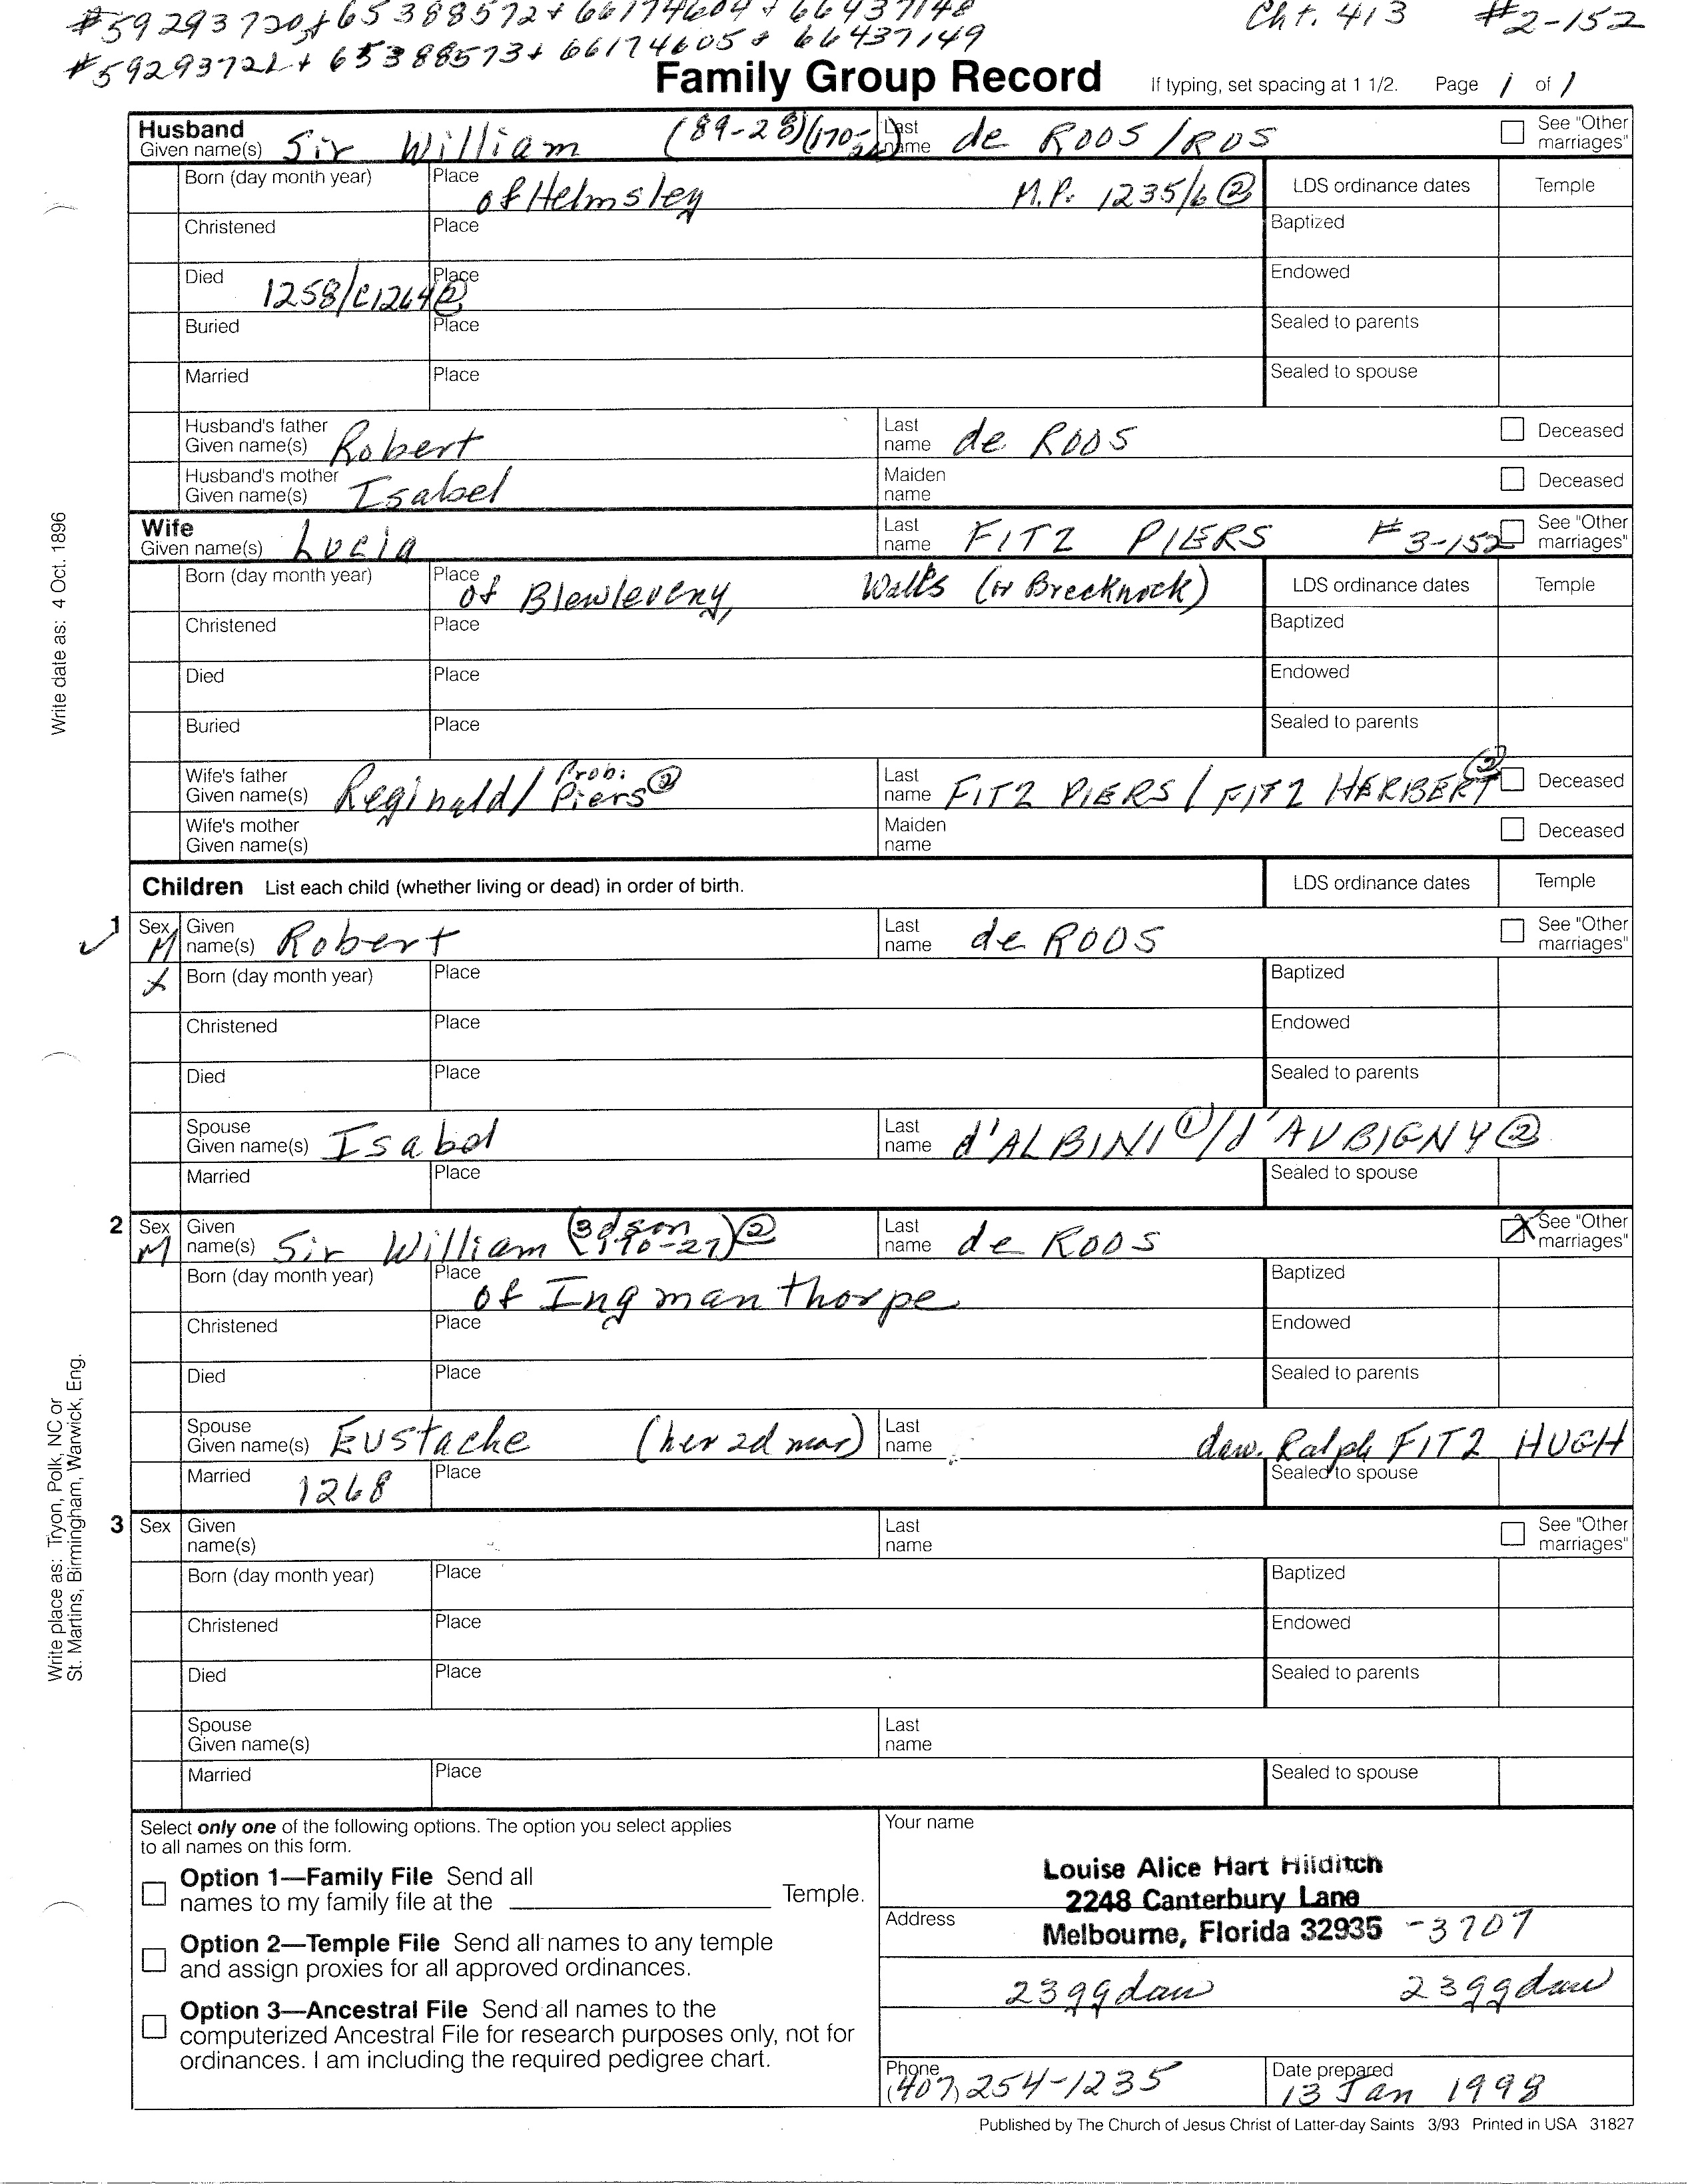 #59293720 + 65388572 + 66174604 + 66437148
Cht. 413 #2-152
#59293721 + 65388573 + 66174605 + 66437149
Family Group Record If typing, set spacing at 1 1/2. Page 1 of 1
Husband
Given name(s) Sir William (89-28) Last name de ROOS/ROS See "Other marriages"
Born (day month year) Place of Helmsley M.P. 1235/6 ② LDS ordinance dates Temple
Christened Place Baptized
Died 1258/c1264 ② Place Endowed
Buried Place Sealed to parents
Married Place Sealed to spouse
Husband's father Given name(s) Robert Last name de ROOS Deceased
Husband's mother Given name(s) Isabel Maiden name Deceased
Wife
Given name(s) Lucia Last name FITZ PIERS #3-152 See "Other marriages"
Born (day month year) Place of Blewleveny, Walls (or Brecknock) LDS ordinance dates Temple
Christened Place Baptized
Died Place Endowed
Buried Place Sealed to parents
Wife's father Given name(s) Reginald/ Prob: Piers ② Last name FITZ PIERS / FITZ HERBERT ② Deceased
Wife's mother Given name(s) Maiden name Deceased
Children List each child (whether living or dead) in order of birth. LDS ordinance dates Temple
1 Sex M Given name(s) Robert Last name de ROOS See "Other marriages"
X Born (day month year) Place Baptized
Christened Place Endowed
Died Place Sealed to parents
Spouse Given name(s) Isabel Last name d'ALBINI ①/d'AUBIGNY ②
Married Place Sealed to spouse
2 Sex M Given name(s) Sir William (3d son 170-27) ② Last name de ROOS X See "Other marriages"
Born (day month year) Place of Ingmanthorpe Baptized
Christened Place Endowed
Died Place Sealed to parents
Spouse Given name(s) Eustache (her 2d mar) Last name dau. Ralph FITZ HUGH
Married 1268 Place Sealed to spouse
3 Sex Given name(s) Last name See "Other marriages"
Born (day month year) Place Baptized
Christened Place Endowed
Died Place Sealed to parents
Spouse Given name(s) Last name
Married Place Sealed to spouse
Write date as: 4 Oct. 1896
Write place as: Tryon, Polk, NC or
St. Martins, Birmingham, Warwick, Eng.
Select only one of the following options. The option you select applies
to all names on this form.
Option 1—Family File Send all
names to my family file at the Temple.
Option 2—Temple File Send all names to any temple
and assign proxies for all approved ordinances.
Option 3—Ancestral File Send all names to the
computerized Ancestral File for research purposes only, not for
ordinances. I am including the required pedigree chart.
Your name
Louise Alice Hart Hilditch
2248 Canterbury Lane
Address
Melbourne, Florida 32935 -3707
23ggdau 23ggdau
Phone (407) 254-1235 Date prepared 13 Jan 1998
Published by The Church of Jesus Christ of Latter-day Saints 3/93 Printed in USA 31827